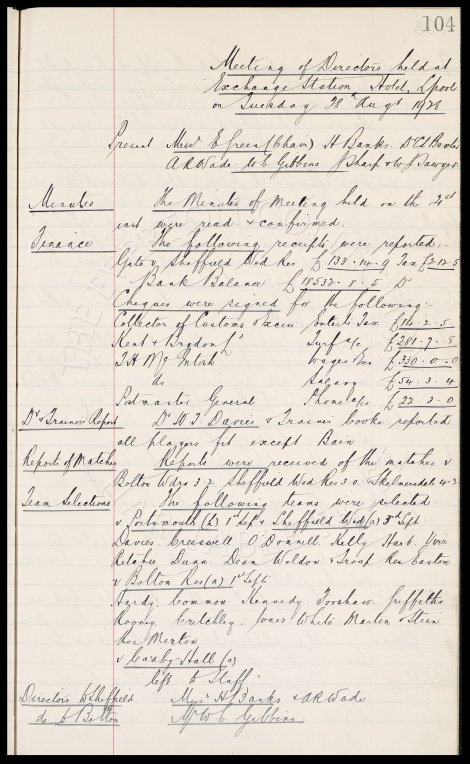 104
Meeting of Directors held at
Exchange Station Hotel, Lpool
on Tuesday 28th Augt 1928
Present Messrs E Green (Chair) H Banks. Dr C S Baxter
A R Wade. W C Gibbins J Sharp & W J Sawyer
Minutes The Minutes of Meeting held on the 21st
inst were read & confirmed.
Finance The following receipts were reported,-
Gate v Sheffield Wed Res £138.14.9 Tax £2.12.5
Bank Balance £18532.8.5 Dr
Cheques were signed for the following:-
Collector of Customs & Excise Enter'ts Tax £14.2.5
Kent & Brydon Ld Turf a/c £281.7.8
T H McIntosh Wages &c £330.0.0
do Salary £54.3.4
Postmaster General Phone a/cs £22.3.0
Dr & Trainers Report Dr W J Davies & Trainer Cooke reported
all players fit except Bain
Reports of Matches Reports were received of the matches v
Bolton Wdrs 3.2 Sheffield Wed Res 3.0 & Skelmersdale 4-2
Team Selections The following teams were selected
v Portsmouth (h) 1st Sept & Sheffield Wed (a) 3rd Sept
Davies Cresswell O'Donnell Kelly Hart Virr
Ritchie Dunn Dean Weldon & Troup Res Easton
v Bolton Res (a) 1st Sept.
Hardy, Common Kennedy, Forshaw, Griffiths
Rooney, Critchley, Jones White Martin & Stein
Res Meston
v Canby Hall (a)
left to Staff
Directors to Sheffield Messrs H Banks & A R Wade
do to Bolton Mr W C Gibbins